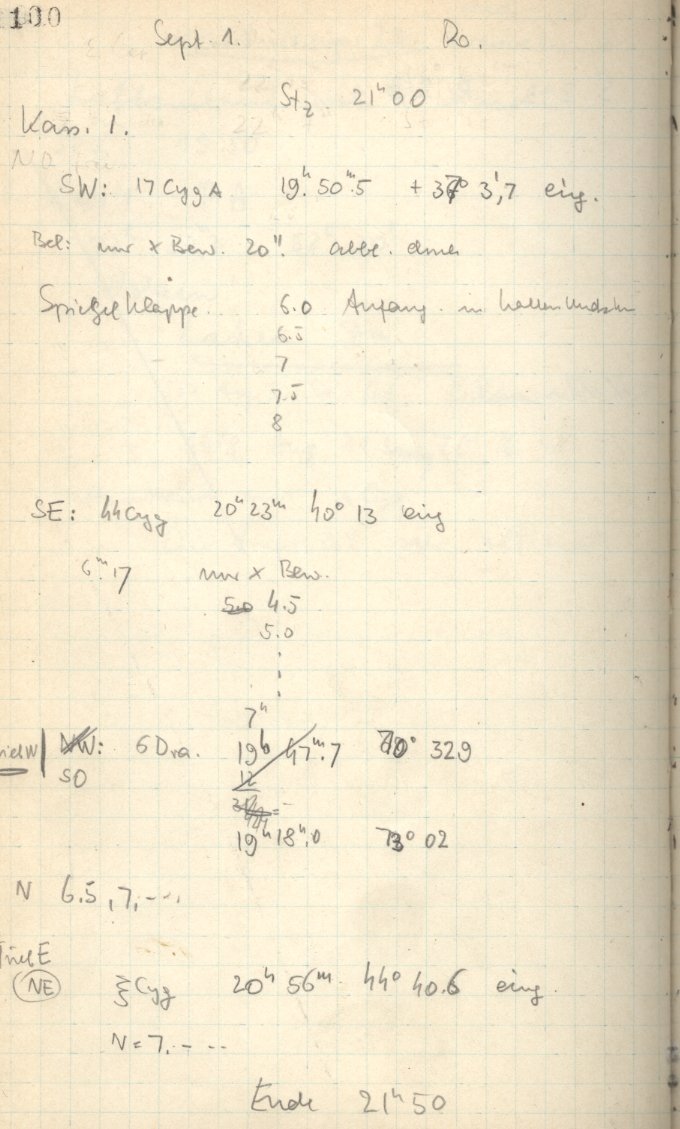 100
Sept. 1. Ro.
Stz. 21ʰ 00
Kass. 1.
SW: 17 Cyg A 19ʰ 50ᵐ.5 + 3° 3',7 eing.
Bel: nur x Bew. 20ᴵᴵ.
Spiegelklappe. 6.0 Anfang. in
6.5
7
7.5
8
SE: 44 Cyg 20ʰ 23ᵐ 40° 13 eing
6ᵐ.17 nur x Bew.
5.0 4.5
5.0
⋮
7ʰ
W NW: 6 Dra. 19ʰ 47ᵐ.7 70° 329
SO 12
19ʰ 18ᵐ.0 73° 02
N 6.5, 7, - - -.
E
NE ξ Cyg 20ʰ 56ᵐ 44° 40.6 eing.
N = 7. - - -
Ende 21ʰ 50